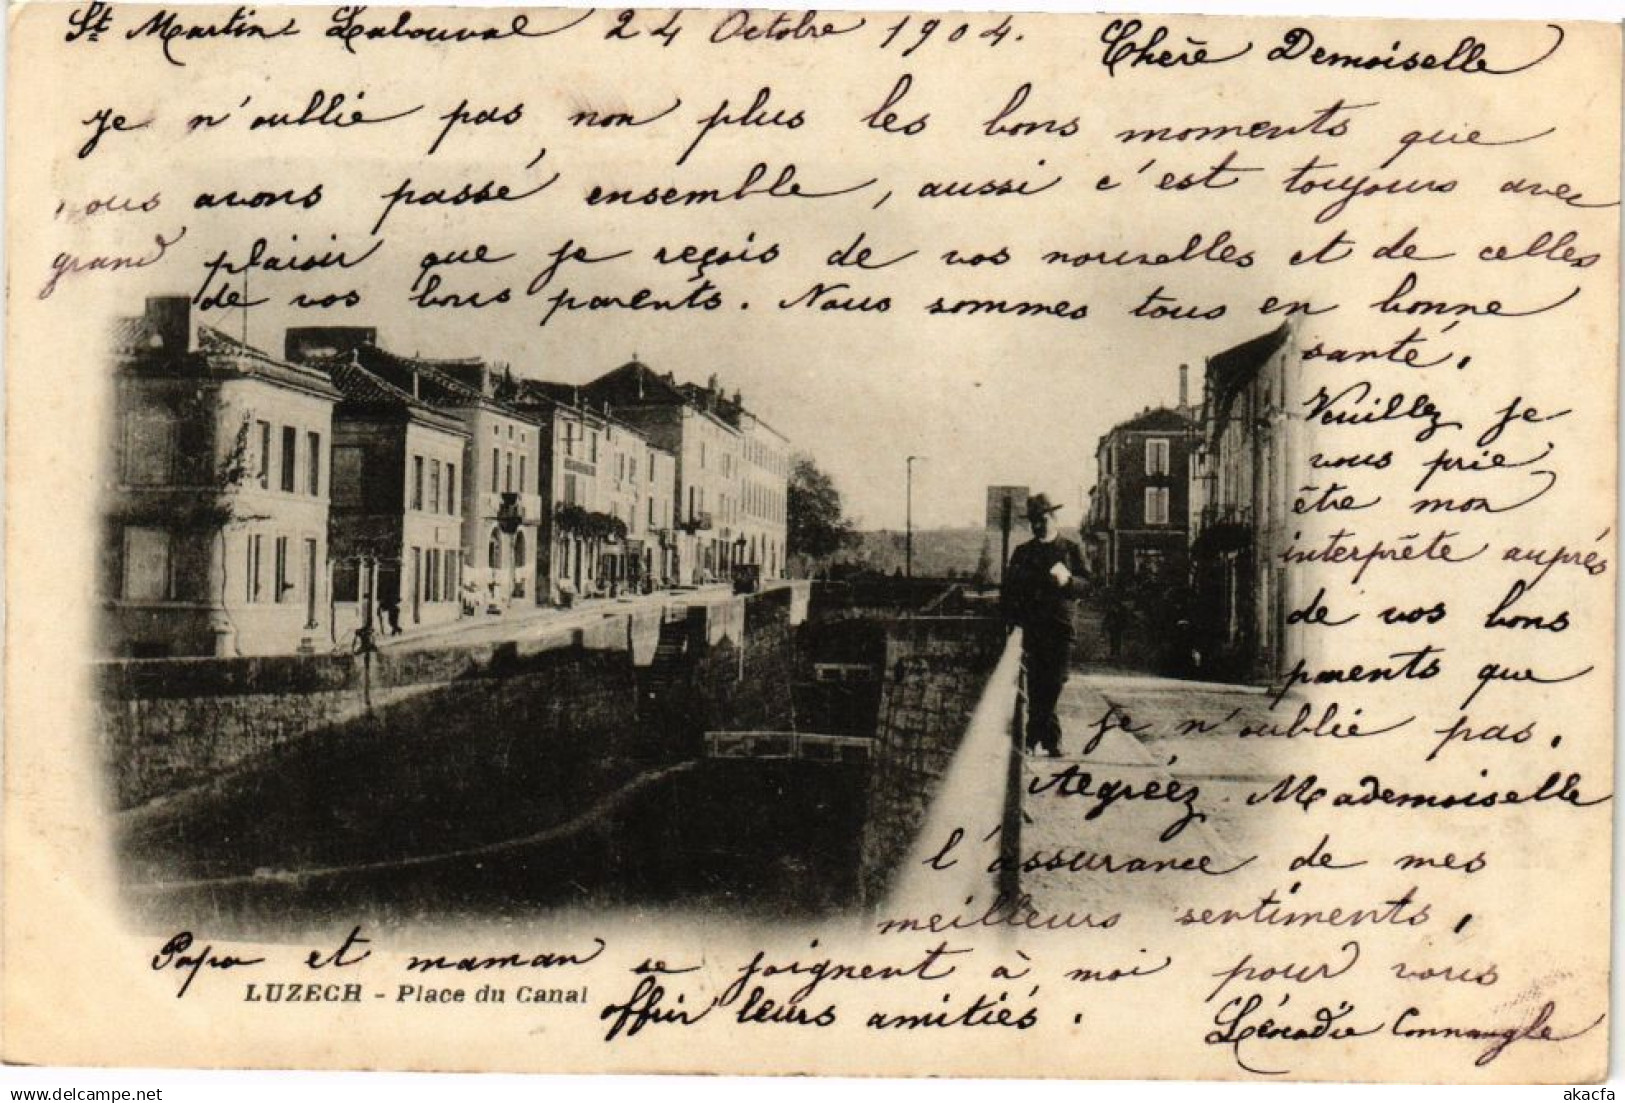 St Martin Labouval 24 Octobre 1904.
Chère Demoiselle
Je n'oublie pas non plus les bons moments que
nous avons passé ensemble, aussi c'est toujours avec
grand plaisir que je reçois de vos nouvelles et de celles
de vos bons parents. Nous sommes tous en bonne
santé.
Veuillez je
vous prie
être mon
interprête auprés
de vos bons
parents que
je n'oublie pas.
Agréez Mademoiselle
l'assurance de mes
meilleurs sentiments,
Papa et maman se joignent à moi pour vous
offrir leurs amitiés.
Léocadie
LUZECH - Place du Canal
akacfa